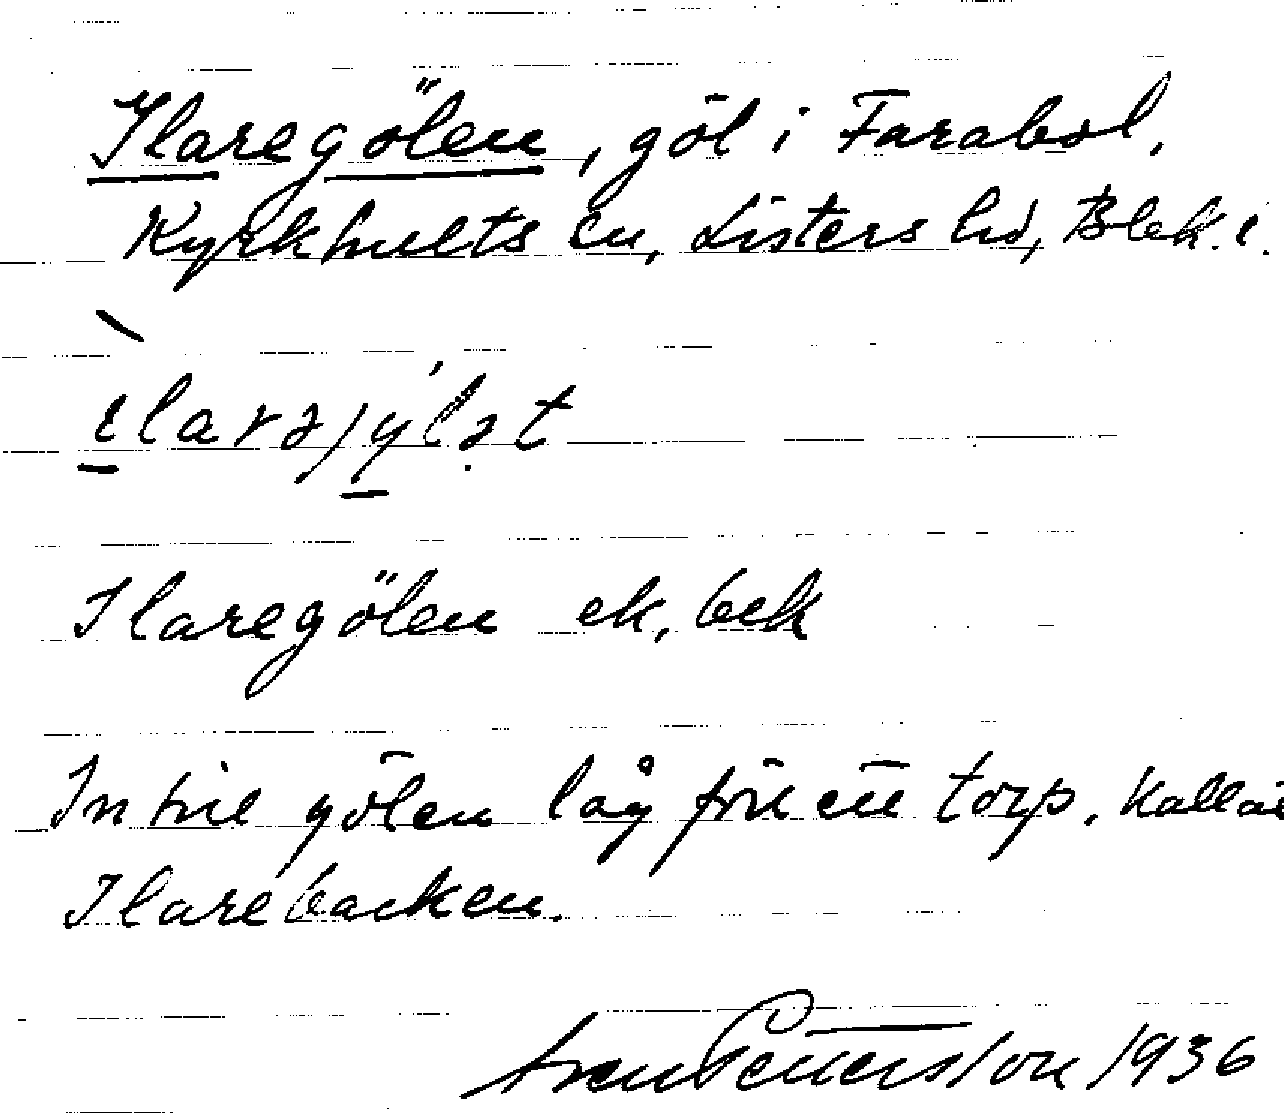 Ilaregölen, göl i Farabol,
Kyrkhults sn, Listers hd, Blek. l.
Ilaregölen ek, bek
Intill gölen låg förr ett torp, kallat
Ilarebacken.
Sven Pettersson 1936